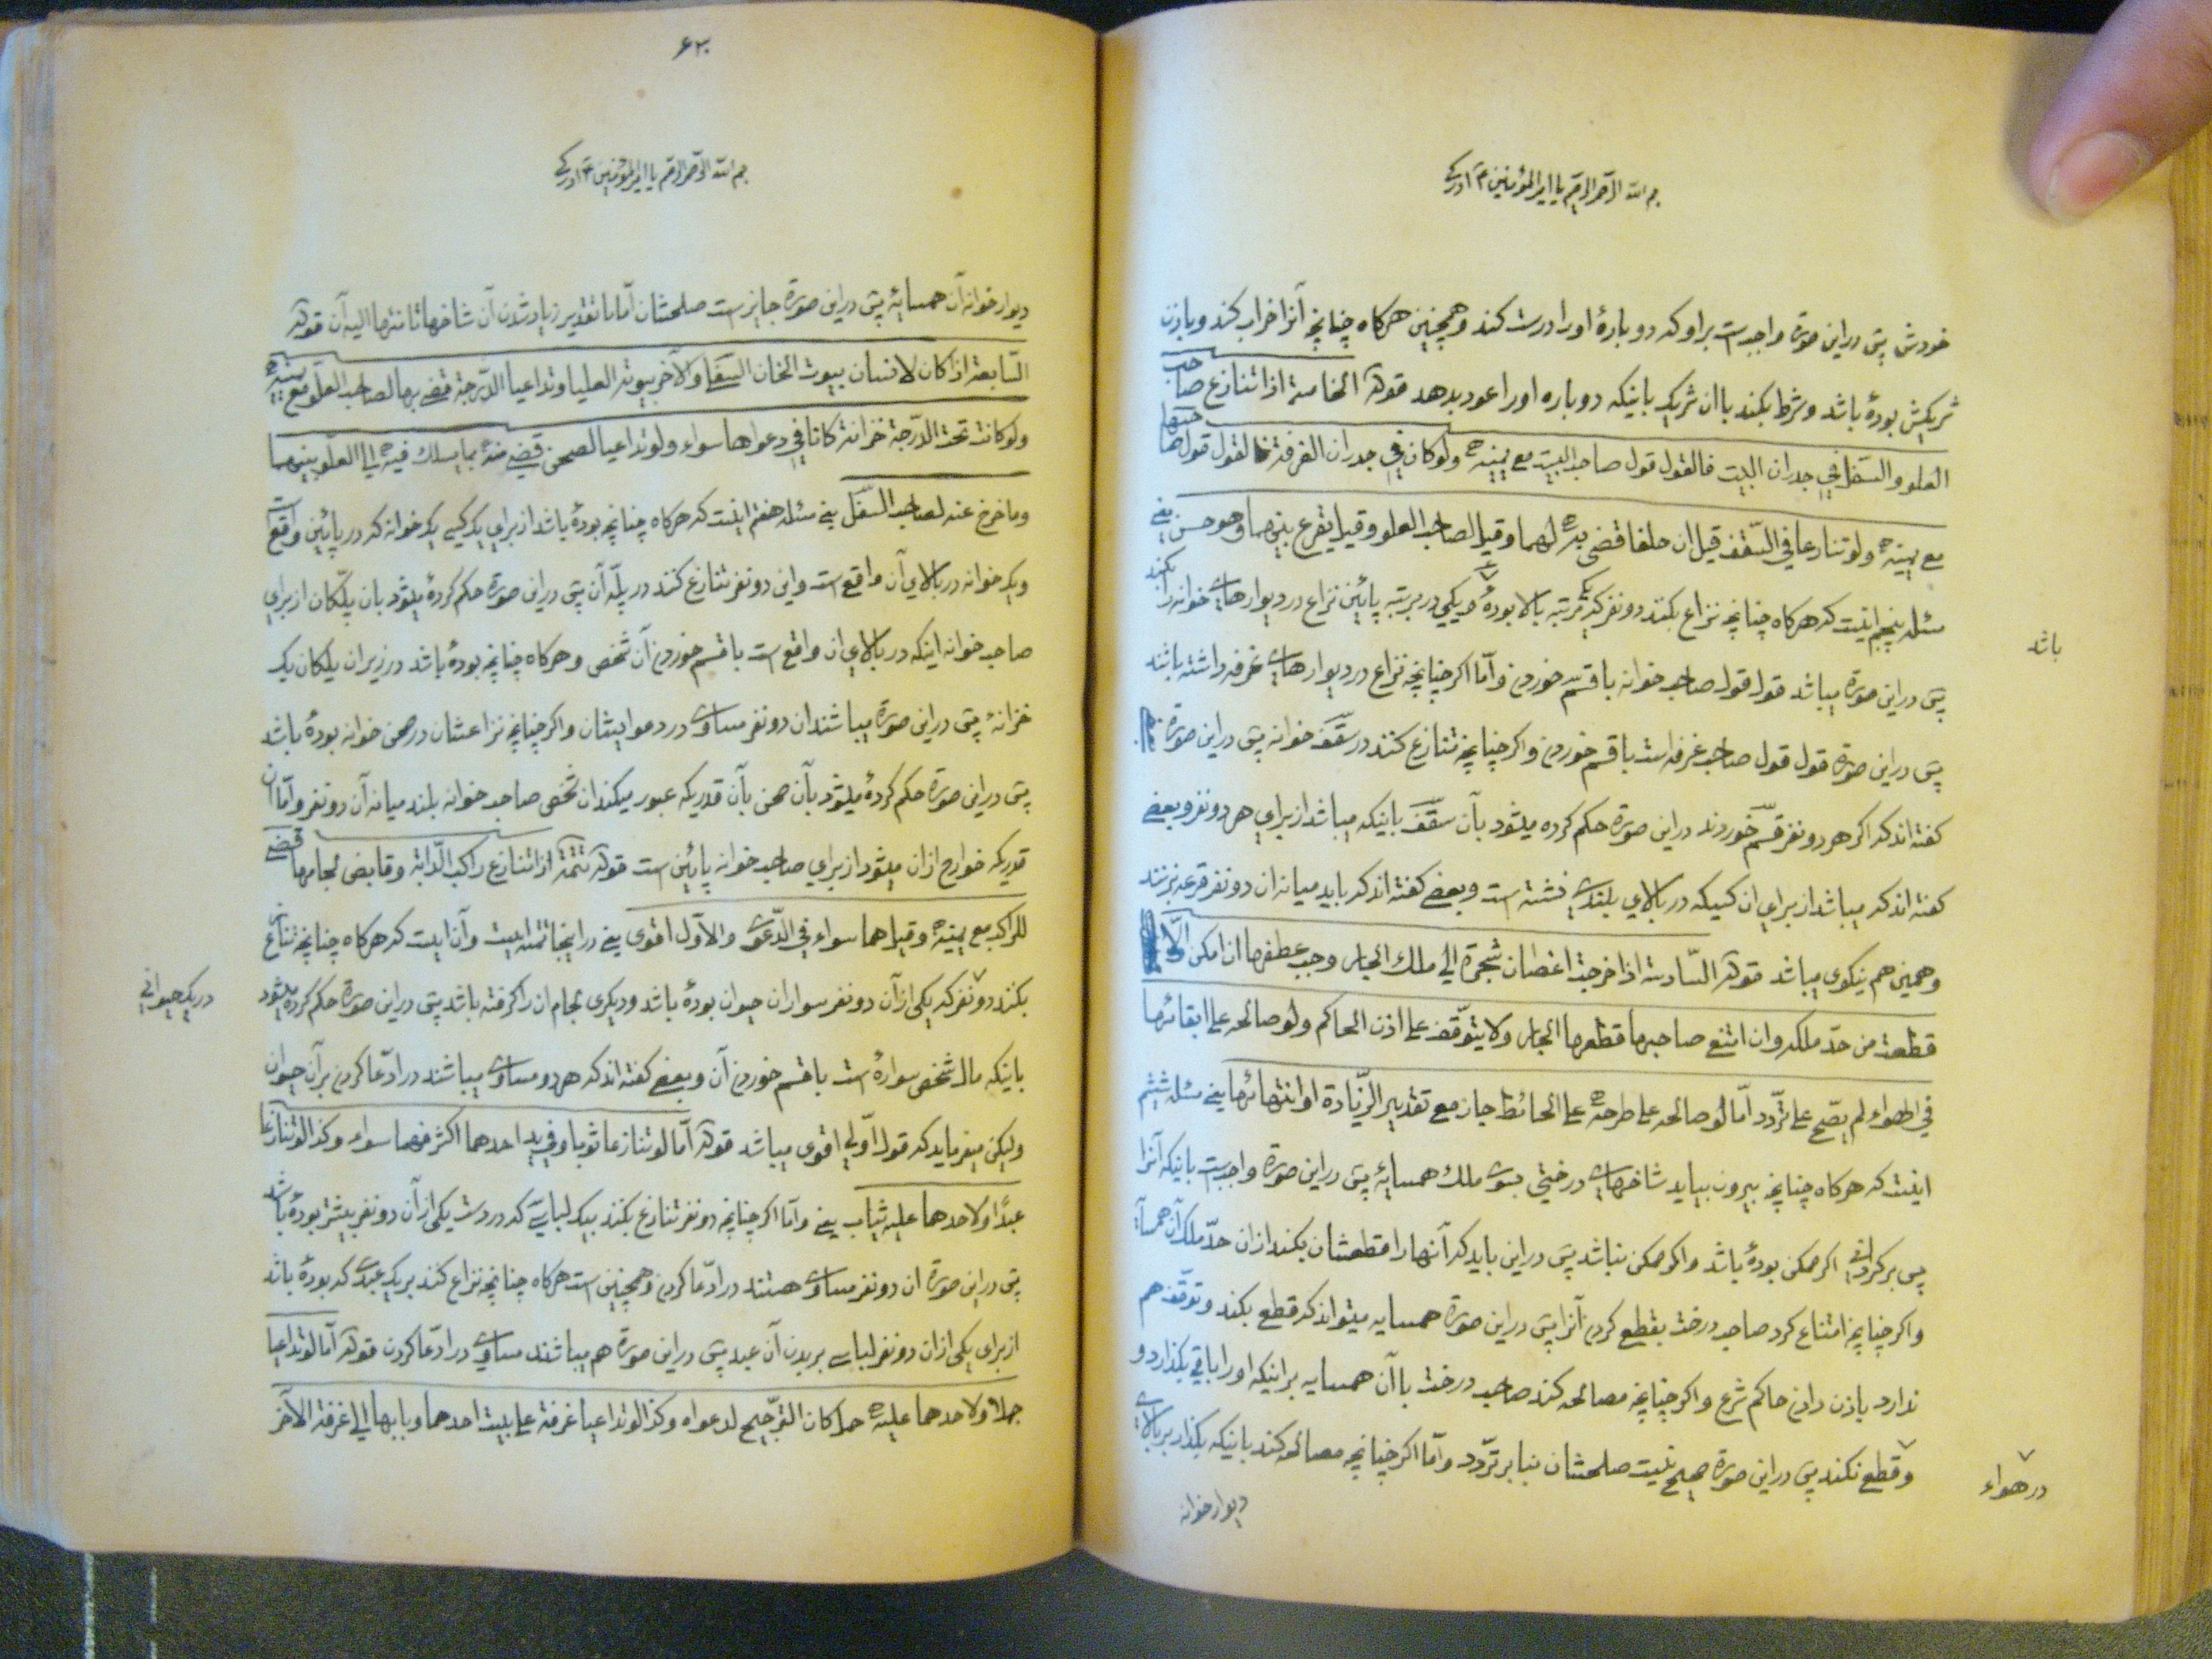 بسم الله الرحمن الرحیم یا امیر المؤمنین ع ادرکنی
خودش پس در این صورة واجبست بر او که دوبارهٔ اورا درست کند و همچنین هرکاه چنانچه آنرا خراب کند و باذن
شریکش بودهٔ باشد و شرط بکند باان شریک باینکه دوباره اورا عود بدهد قوله الخامسة اذا تنازع صاحب
العلو و السفل فی جدران البیت فالقول قول صاحب البیت مع یمینه و لو کان فی جدران الغرفة فالقول قول صاحبها
مع یمینه و لو تنازعا فی السّقف قیل ان حلفا قضی به لهما و قیل لصاحب العلو و قیل یقرع بینهما و هو حسن یعنی
مسئله پنجم اینست که هرکاه چنانچه نزاع بکنند دو نفر که یکی مرتبه بالا بودهٔ و یکی در مرتبه پائین نزاع در دیوارهای خوانه را بکنند
باشد
پس در این صورة میباشد قول قول صاحب خوانه با قسم خوردن و امّا اکر چنانچه نزاع در دیوارهای غرفه داشته باشند
پس در این صورة قول قول صاحب غرفه است با قسم خوردن و اکر چنانچه تنازع کنند در سقف خوانه پس در این صورة
کفته اند که اکر هر دو نفر قسم خوردند در این صورة حکم کرده میشود بآن سقف باینکه میباشد از برای هر دو نفر و بعضی
کفته اند که میباشد از برای ان کسیکه در بالای بلندی نشسته است و بعضی کفته اند که باید میانه ان دو نفر قرعه بزنند
و همین هم نیکوی میباشد قوله السّادسة اذا خرجت اغصان شجرة الی ملک الجار وجب عطفها ان امکن و الّا
قطعت من حدّ ملکه و ان امتنع صاحبها قطعها الجار و لا یتوقّف علی اذن الحاکم و لو صالحه علی ابقائها
فی الهواء لم یصح علی تردّد امّا لو صالحه علی طرحه علی الحائط جاز مع تقدیر الزّیادة او انتهائها یعنی مسئله ششم
اینست که هرکاه چنانچه بیرون بیاید شاخهای درختی بسوی ملک همسایهٔ پس در این صورة واجبست باینکه آنرا
پس برکردانی اکر ممکن بودهٔ باشد و اکر ممکن نباشد پس در این باید که آنها را قطعشان بکند از ان حدّ ملک آن همسایه
و اکر چنانچه امتناع کرد صاحب درخت بقطع کردن آنرا پس در این صورة همسایه میتواند که قطع بکند و توقّف هم
ندارد باذن دادن حاکم شرع و اکر چنانچه مصالحه کند صاحب درخت با آن همسایه بر اینکه اورا باقی بکذارد و
و قطع نکند پس در این صورة صحیح نیست صلحشان بنا بر تردّد و امّا اکر چنانچه مصالحه کند باینکه بکذارد بر بالای
در هواء
دیوار خوانه
۶۲۰
بسم الله الرحمن الرحیم یا امیر المؤمنین ع ادرکنی
دیوار خوانه آن همسایهٔ پس در این صورة جایز است صلحشان امّا با تقدیر زیاد شدن آن شاخها تا منتها الیه آن قوله
السّابعة اذا کان لانسان بیوت الخان السفلی و لآخر بیوته العلیا و تداعیا الدّرجة قضی بها لصاحب العلو مع یمینه
و لو کانت تحت الدّرجة خزانة کانا فی دعواها سواء و لو تداعیا الصحن قضی منهٔ بما یسلک فیه الی العلو بینهما
و ما خرج عنه لصاحب السّفل یعنی مسئله هفتم اینست که هرکاه چنانچه بودهٔ باشد از برای یک کسی یک خوانه که در پائین واقع است
و یک خوانه در بالای آن واقع است و این دو نفر تنازع کنند در پلّه آن پس در این صورة حکم کردهٔ میشود بان پلّکان از برای
صاحب خوانه اینکه در بالای ان واقع است با قسم خوردن آن شخص و هرکاه چنانچه بودهٔ باشد در زیر ان پلکان یک
خزانهٔ پس در این صورة میباشند ان دو نفر مساوی در دعوایشان و اکر چنانچه نزاعشان در صحن خوانه بودهٔ باشد
پس در این صورة حکم کردهٔ میشود بآن صحن بآن قدریکه عبور میکند ان شخص صاحب خوانه بلند میانه آن دو نفر و امّا ان
قدریکه خوارج از ان میشود از برای صاحب خوانه پائین است قوله تتمّة اذا تنازع راکب الدّابة و قابض لجامها قضی
للراکب مع یمینه و قیل هما سواء فی الدّعوی و الاوّل اقوی یعنی در اینجا تتمه ایست و آن ایست که هرکاه چنانچه تنازع
بکنند دو نفر که یکی از آن دو نفر سوار ان حیوان بودهٔ باشد و دیکری لجام ان را کرفته باشد پس در این صورة حکم کرده میشود
در یک حیوانی
باینکه مال شخص سوارهٔ است با قسم خوردن آن و بعضی کفته اند که هر دو مساوی میباشند در ادّعا کردن بر آن حیوان
ولیکن میفرماید که قول اوّلی اقوی میباشد قوله امّا لو تنازعا ثوبا و فی ید احدهما اکثر فهما سواء و کذا لو تنازعا
عبدًا و لاحدهما علیه ثیاب یعنی و امّا اکر چنانچه دو نفر تنازع بکنند بیک لباسی که در دست یکی از آن دو نفر بیشتر بودهٔ باشد
پس در این صورة ان دو نفر مساوی هستند در ادّعا کردن و همچنین است هرکاه چنانچه نزاع کنند بر یک عبدی که بودهٔ باشد
از برای یکی از ان دو نفر لباسی بر بدن آن عبد پس در این صورة هم میباشند مساوی در ادّعا کردن قوله امّا لو تداعیا
جملا و لاحدهما علیه حمل کان التّرجیح لدعواه و کذا لو تداعیا غرفة علی بیت احدهما و بابها الی غرفة الآخر